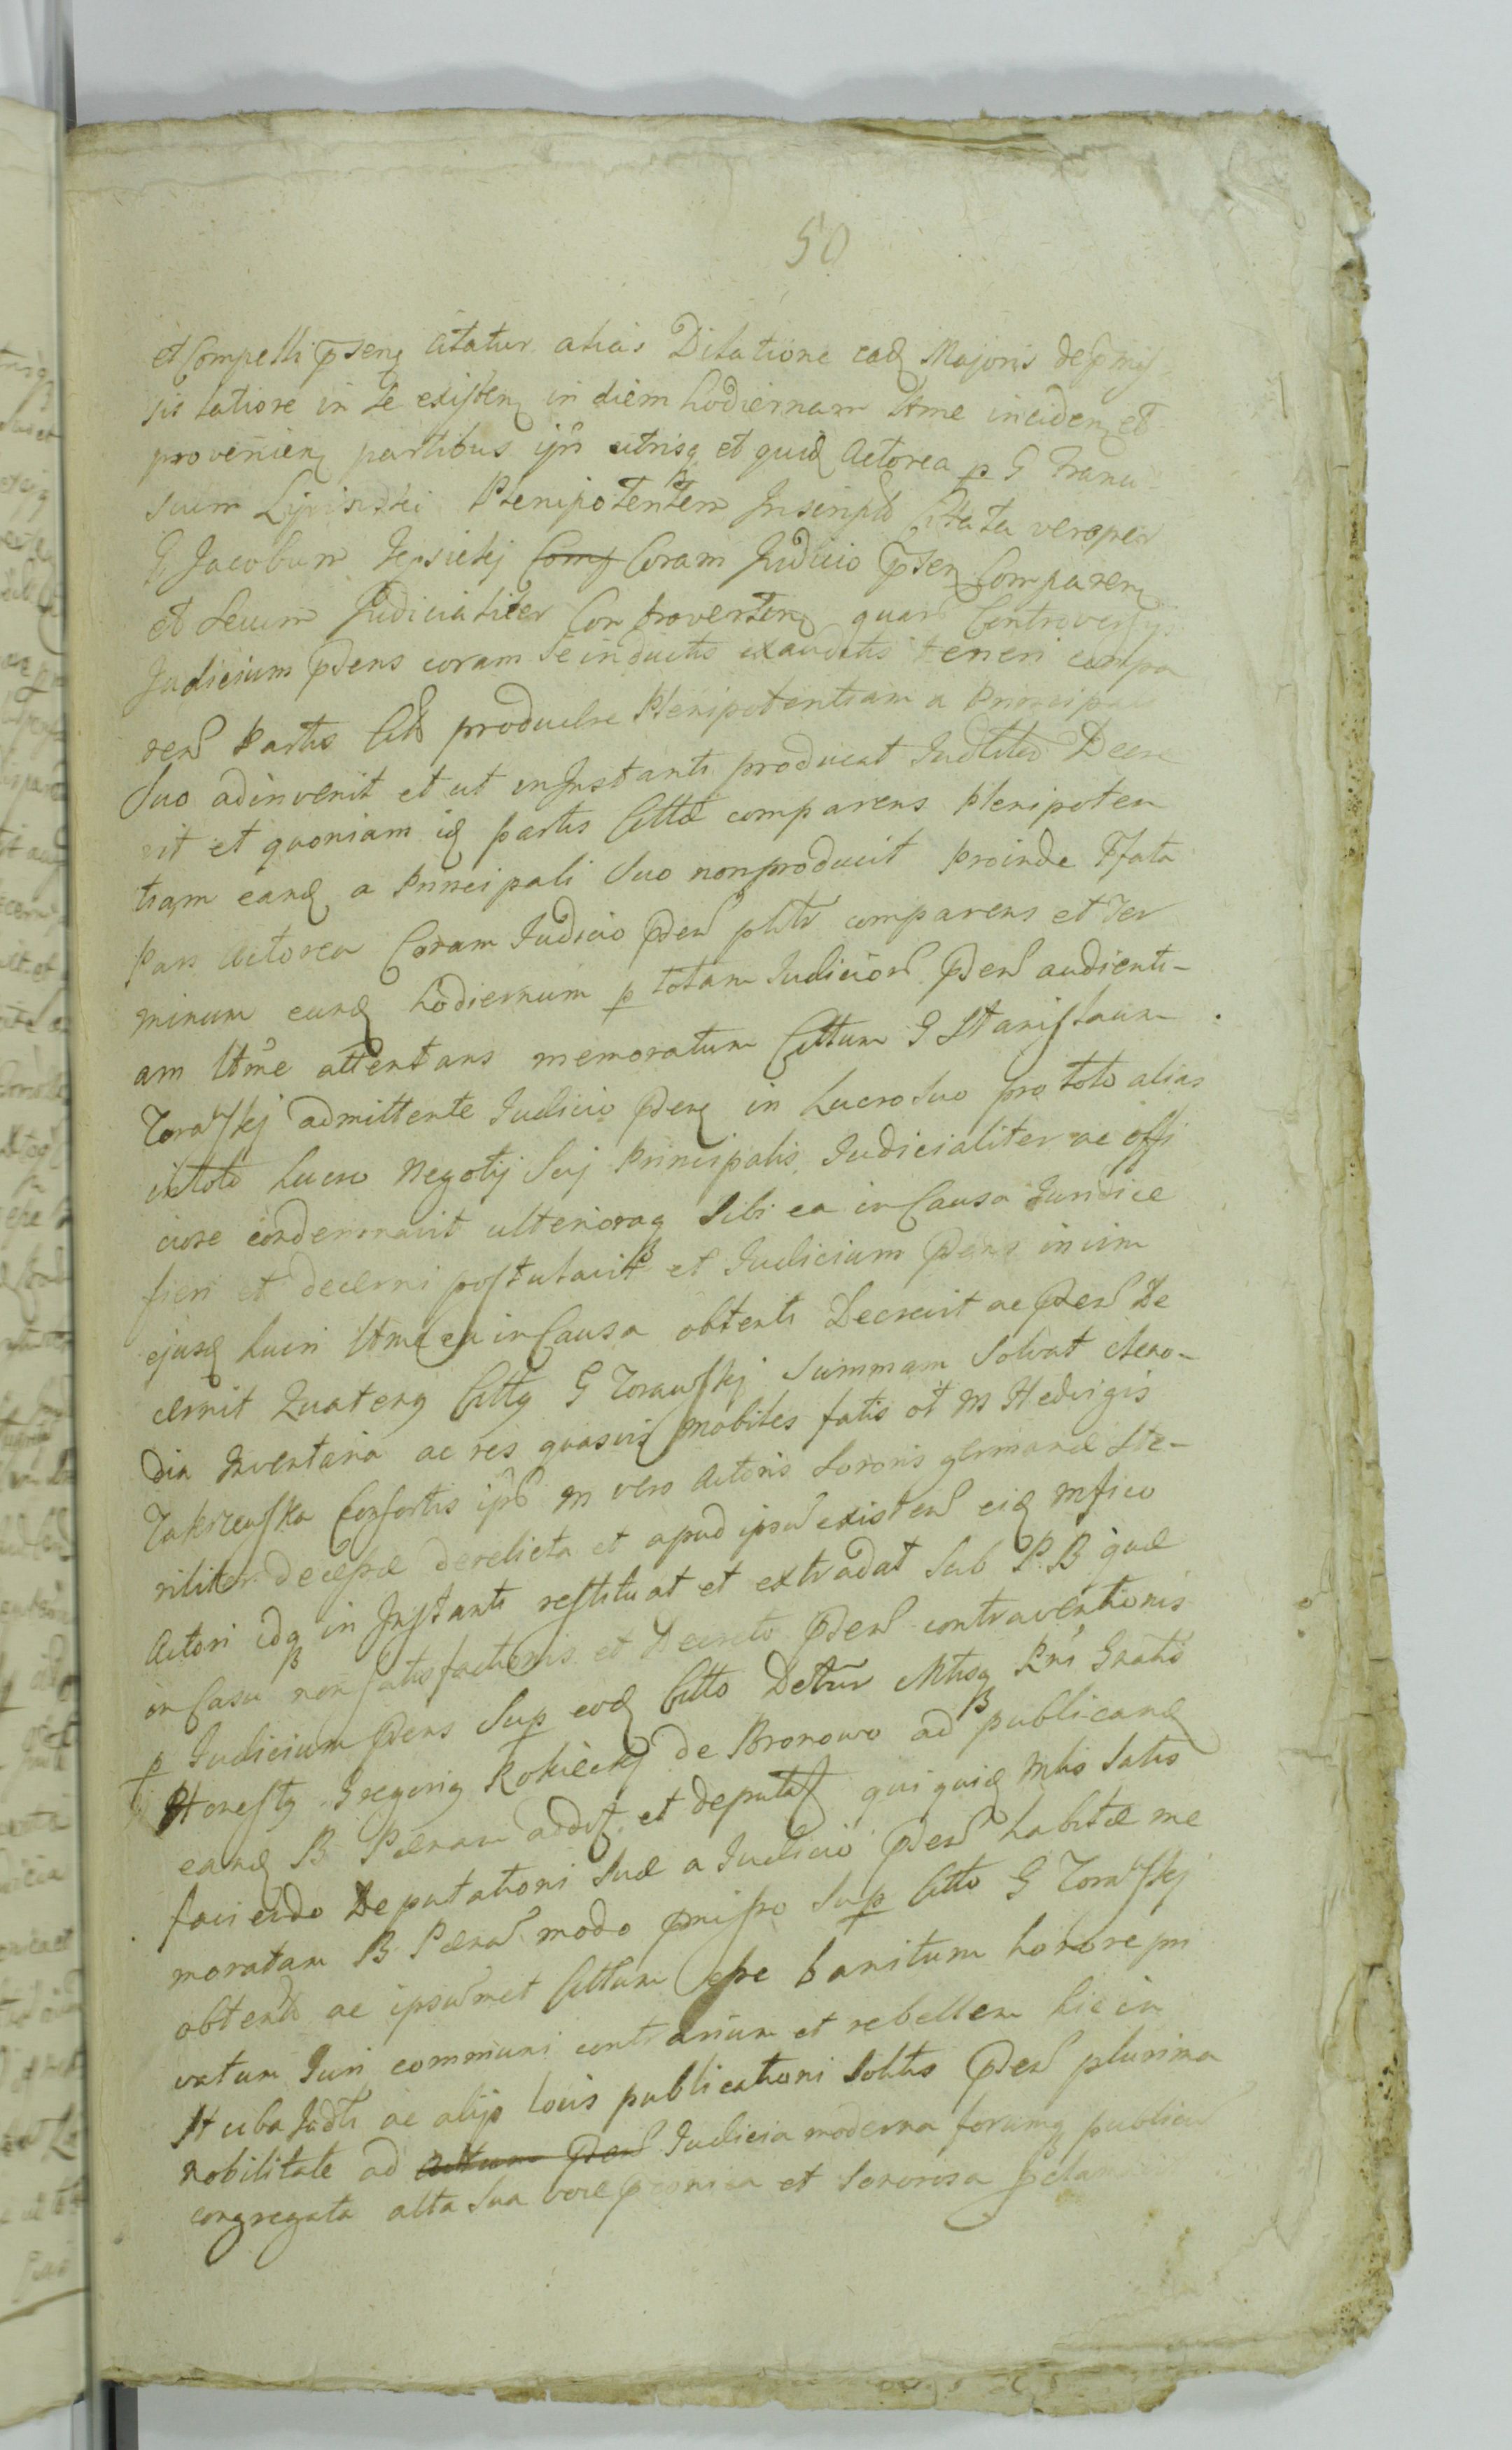 50
et Compelli p̄senꝫ Citatur alias Dilatione eadꝫ Majoris de p̄mis
sis latiore in se existenꝫ in diem hodiernam Ultme incidenꝫ et
provenienꝫ partibus ijs utrisqꝫ et quidꝫ Actorea p G Franci
scum Lipinski Plenipotentem Inscriptū Citata vero per
G Jacobum Coram Judicio p̄senꝫ Comparenꝫ
et secum Judicialiter Controvertenꝫ quarū Controversijs
Judicium p̄dens coram se inductis exauditis teneri compa
renū Partis Cittæ producere Plenipotentiam a Principali
Suo adinvenit et ut in Instanti producat Judtlter Decre
vit et quoniam idꝫ partis Cittæ comparens Plenipoten
tiam eandꝫ a Principali Suo non producit proinde Pfata
Pars Actorea Coram Judicio p̄denū pltr comparens et Ter
minum eundꝫ hodiernum p totam Judiciorū p̄denū audienti-
am Ultme attentans memoratum Cittum G Stanislaum
Torawskj admittente Judicio p̄denꝫ in Lucro Suo pro toto alias
in toto lucro Negotij Suj Principalis Judicialiter ac offi
ciose condemnavit ulterioraqꝫ Sibi ea in Causa Juridice
fieri et decerni postulavit et Judicium p̄dens in vim
ejusdꝫ lucri Ultme ea in Causa obtenti Decrevit ac p̄denū De
cernit Quatenꝫ Cittꝫ G Torawskj Summam Solvat clero-
dia Inventaria ac res quasvis mobiles fatis ol M Hedvigis
Zakrzewska Consortis ipsū M vero Actoris Sororis germanæ Ste-
riliter decessæ derelicta et apud ipsū existenū eidꝫ Mfico
Actori idqꝫ in Instanti restituat et extradat Sub P. B. quæ
in Casu non satisfactionis et Decreto p̄denū contraventionis
p Judicium p̄dens Sup eodꝫ Citto Detur Mtusqꝫ Rni Gnalis
Honestꝫ Gregoriꝫ Rokickj de Bronowo ad publicandꝫ
eandꝫ B Pænam addit et deputat qui quidꝫ Mtis Satis
faciendo Deputationi Suæ a Judicio p̄denū habitæ me
moratam B. Pænā modo p̄misso Sup Citto G Torawskj
obtentā ac ipsūmet Cittum esse banitum honore pri
vatum Juri communi contrarium et rebellem hic in
Stuba Judtli ac alijs locis publicationi Solitis p̄denū plurima
nobilitate ad Actum p̄denū Judicia moderna forumqꝫ publicū
congregata alta Sua voce p̄conica et Sonorosa